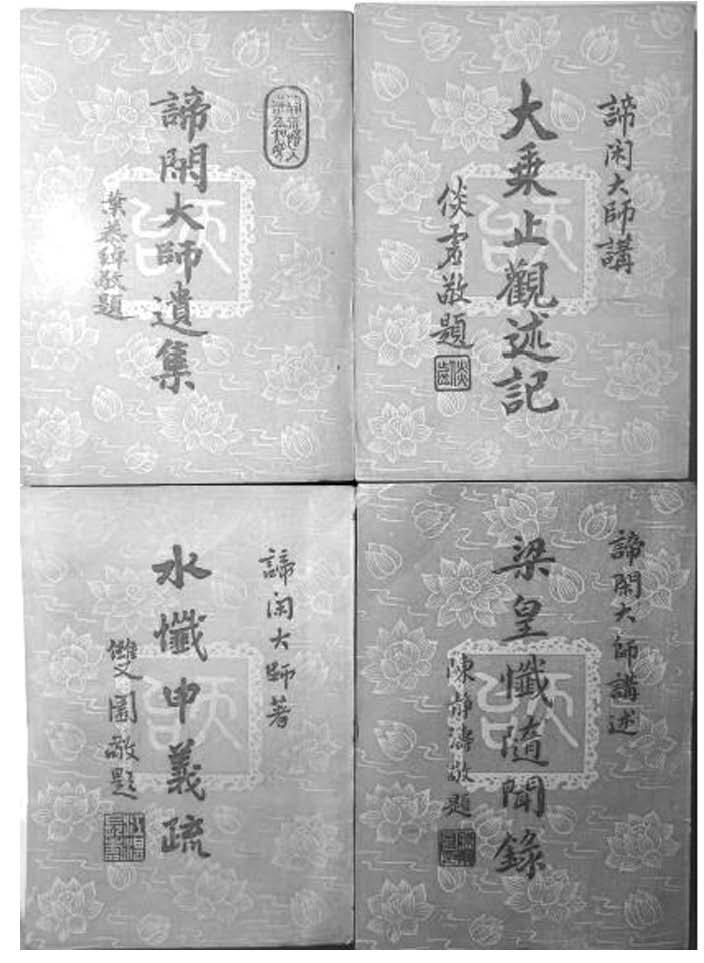 諦閑大師遺集
葉恭綽敬題
諦閑大師講
大乘止觀述記
倓虛敬題
諦閑大師著
水懺申義疏
敬題
諦閑大師講述
梁皇懺隨聞錄
陳靜濤敬題